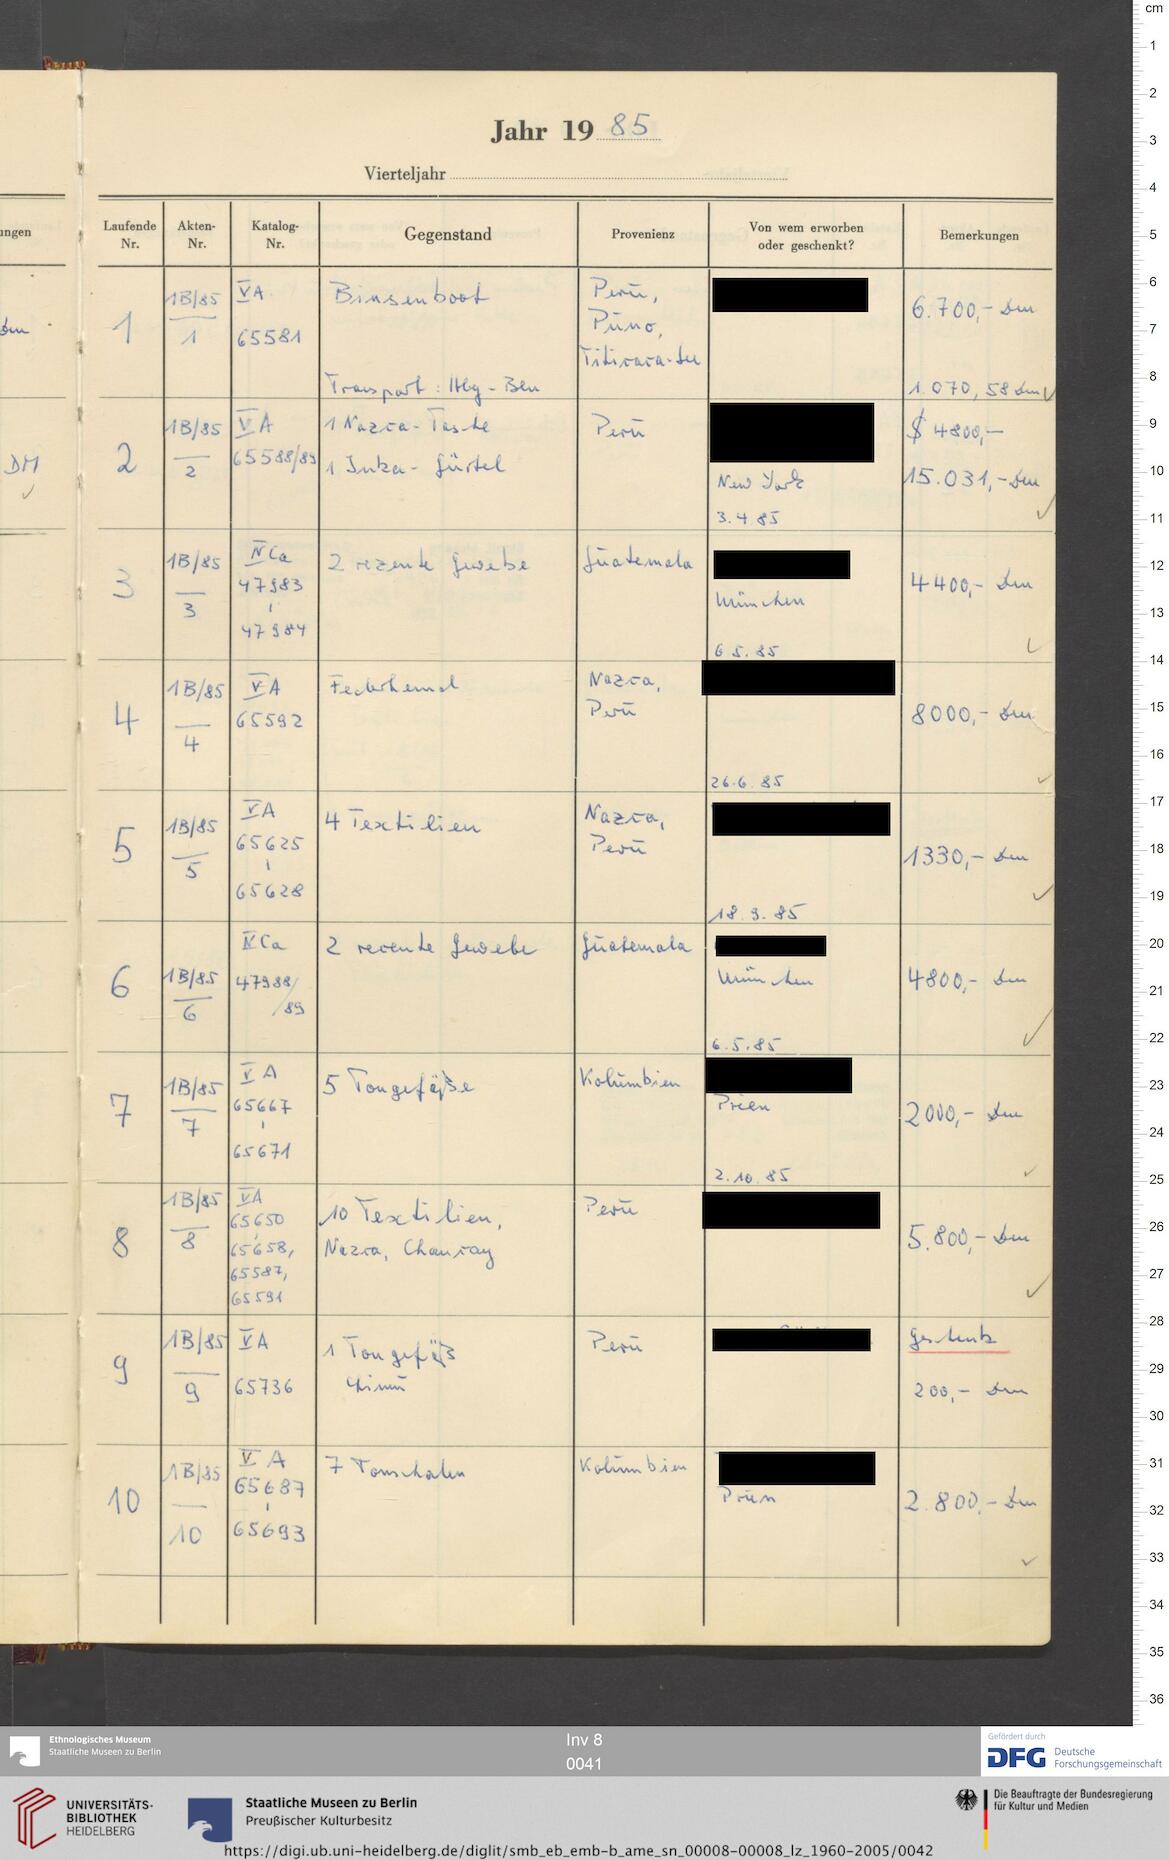 Jahr 1985
Vierteljahr
Laufende Nr.
Akten-Nr.
Katalog-Nr.
Gegenstand
Provenienz
Von wem erworben oder geschenkt?
Bemerkungen
ungen
Dm
DM
1
1B/85
1
VA
65581
Binsenboot
Transport: Hbg-Bln
Peru,
Puno,
Titicaca-See
6.700,- Dm
1.070,58 Dm
2
1B/85
2
VA
65588/89
1 Nazca-Tasche
1 Inka-Gürtel
Peru
New York
3.4.85
$ 4800,-
15.031,- Dm
3
1B/85
3
IV Ca
47983
47984
2 rezente Gewebe
Guatemala
München
6.5.85
4400,- Dm
4
1B/85
4
VA
65592
Federhemd
Nazca,
Peru
26.6.85
8000,- Dm
5
1B/85
5
VA
65625
65628
4 Textilien
Nazca,
Peru
18.9.85
1330,- Dm
6
1B/85
6
IV Ca
47988/89
2 rezente Gewebe
Guatemala
München
6.5.85
4800,- Dm
7
1B/85
7
VA
65667
65671
5 Tongefäße
Kolumbien
Prien
2.10.85
2000,- Dm
8
1B/85
8
VA
65650
65658,
65587,
65591
10 Textilien,
Nazca, Chancay
Peru
5.800,- Dm
9
1B/85
9
VA
65736
1 Tongefäß
Chimu
Peru
Geschenk
200,- Dm
10
1B/85
10
VA
65687
65693
7 Tonschalen
Kolumbien
Prien
2.800,- Dm
cm
1
2
3
4
5
6
7
8
9
10
11
12
13
14
15
16
17
18
19
20
21
22
23
24
25
26
27
28
29
30
31
32
33
34
35
36
Ethnologisches Museum
Staatliche Museen zu Berlin
Inv 8
0041
Gefördert durch
DFG Deutsche
Forschungsgemeinschaft
UNIVERSITÄTS-
BIBLIOTHEK
HEIDELBERG
Staatliche Museen zu Berlin
Preußischer Kulturbesitz
Die Beauftragte der Bundesregierung
für Kultur und Medien
https://digi.ub.uni-heidelberg.de/diglit/smb_eb_emb-b_ame_sn_00008-00008_lz_1960-2005/0042